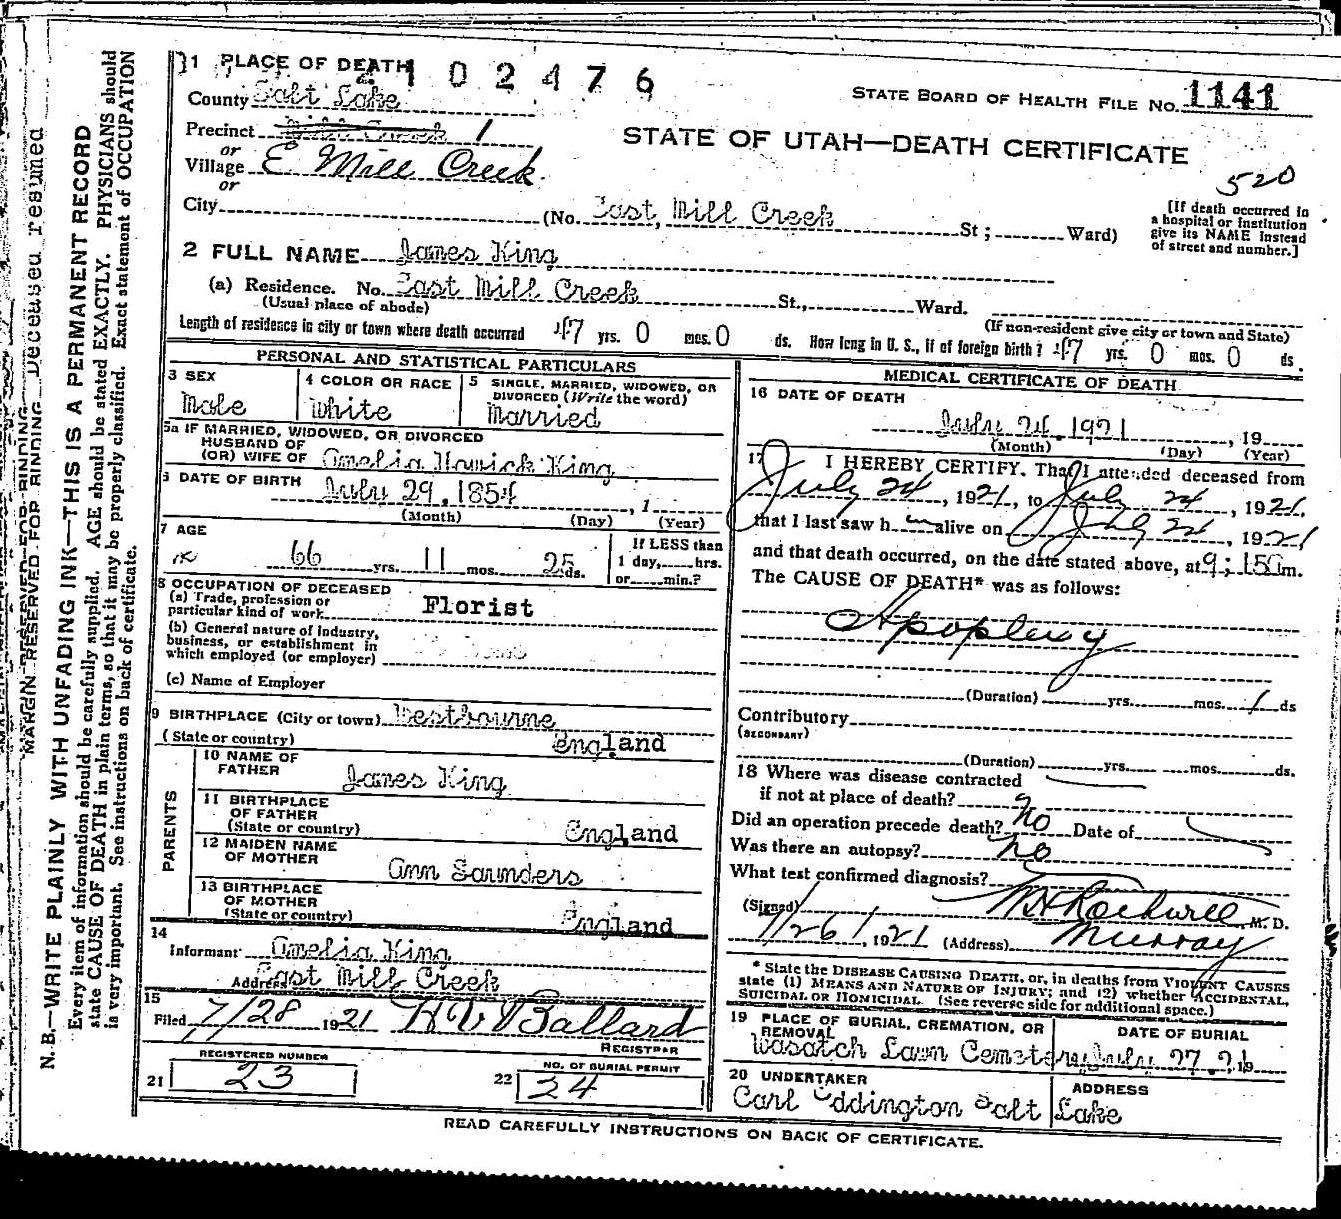 1 PLACE OF DEATH
2102476
STATE BOARD OF HEALTH FILE No. 1141
County Salt Lake
STATE OF UTAH—DEATH CERTIFICATE
Precinct Mill Creek 1
or
Village E. Mill Creek
or
520
City (No. East Mill Creek St; Ward)
[If death occurred in
a hospital or institution
give its NAME instead
of street and number.]
2 FULL NAME James King
(a) Residence. No. East Mill Creek St., Ward.
(Usual place of abode) (If non-resident give city or town and State)
Length of residence in city or town where death occurred 47 yrs. 0 mos. 0 ds. How long in U. S., if of foreign birth? 47 yrs. 0 mos. 0 ds.
PERSONAL AND STATISTICAL PARTICULARS
3 SEX
Male
4 COLOR OR RACE
White
5 SINGLE, MARRIED, WIDOWED, OR
DIVORCED (Write the word)
Married
5a IF MARRIED, WIDOWED, OR DIVORCED
HUSBAND OF
(OR) WIFE OF Amelia Howick King
6 DATE OF BIRTH July 29, 1854, 1
(Month) (Day) (Year)
7 AGE
66 yrs. 11 mos. 25 ds.
If LESS than
1 day, hrs.
or min.?
8 OCCUPATION OF DECEASED
(a) Trade, profession or
particular kind of work Florist
(b) General nature of industry,
business, or establishment in
which employed (or employer)
(c) Name of Employer
9 BIRTHPLACE (City or town) Westbourne
(State or country) England
PARENTS
10 NAME OF
FATHER James King
11 BIRTHPLACE
OF FATHER
(State or country) England
12 MAIDEN NAME
OF MOTHER Ann Saunders
13 BIRTHPLACE
OF MOTHER
(State or country) England
14
Informant Amelia King
Address East Mill Creek
15
Filed 7/28 1921 H V Ballard
REGISTRAR
REGISTERED NUMBER
21 23
NO. OF BURIAL PERMIT
22 24
MEDICAL CERTIFICATE OF DEATH
16 DATE OF DEATH
July 24, 1921, 19
(Month) (Day) (Year)
17 I HEREBY CERTIFY. That I attended deceased from
July 24, 1921, to July 24, 1921.
that I last saw h im alive on July 24, 1921
and that death occurred, on the date stated above, at 9:15 a m.
The CAUSE OF DEATH* was as follows:
Apoplexy
(Duration) yrs. mos. 1 ds
Contributory
(SECONDARY)
(Duration) yrs. mos. ds.
18 Where was disease contracted
if not at place of death?
Did an operation precede death? no Date of
Was there an autopsy? no
What test confirmed diagnosis?
(Signed) Rockwell M. D.
7/26, 1921 (Address) Murray
* State the DISEASE CAUSING DEATH, or, in deaths from VIOLENT CAUSES
state (1) MEANS AND NATURE OF INJURY; and (2) whether ACCIDENTAL,
SUICIDAL OR HOMICIDAL. (See reverse side for additional space.)
19 PLACE OF BURIAL, CREMATION, OR
REMOVAL
Wasatch Lawn Cemetery
DATE OF BURIAL
July 27, 19
20 UNDERTAKER
Carl Eddington Salt Lake
ADDRESS
READ CAREFULLY INSTRUCTIONS ON BACK OF CERTIFICATE.
MARGIN RESERVED FOR BINDING
N. B.—WRITE PLAINLY WITH UNFADING INK—THIS IS A PERMANENT RECORD
Every item of information should be carefully supplied. AGE should be stated EXACTLY. PHYSICIANS should
state CAUSE OF DEATH in plain terms, so that it may be properly classified. Exact statement of OCCUPATION
is very important. See instructions on back of certificate.